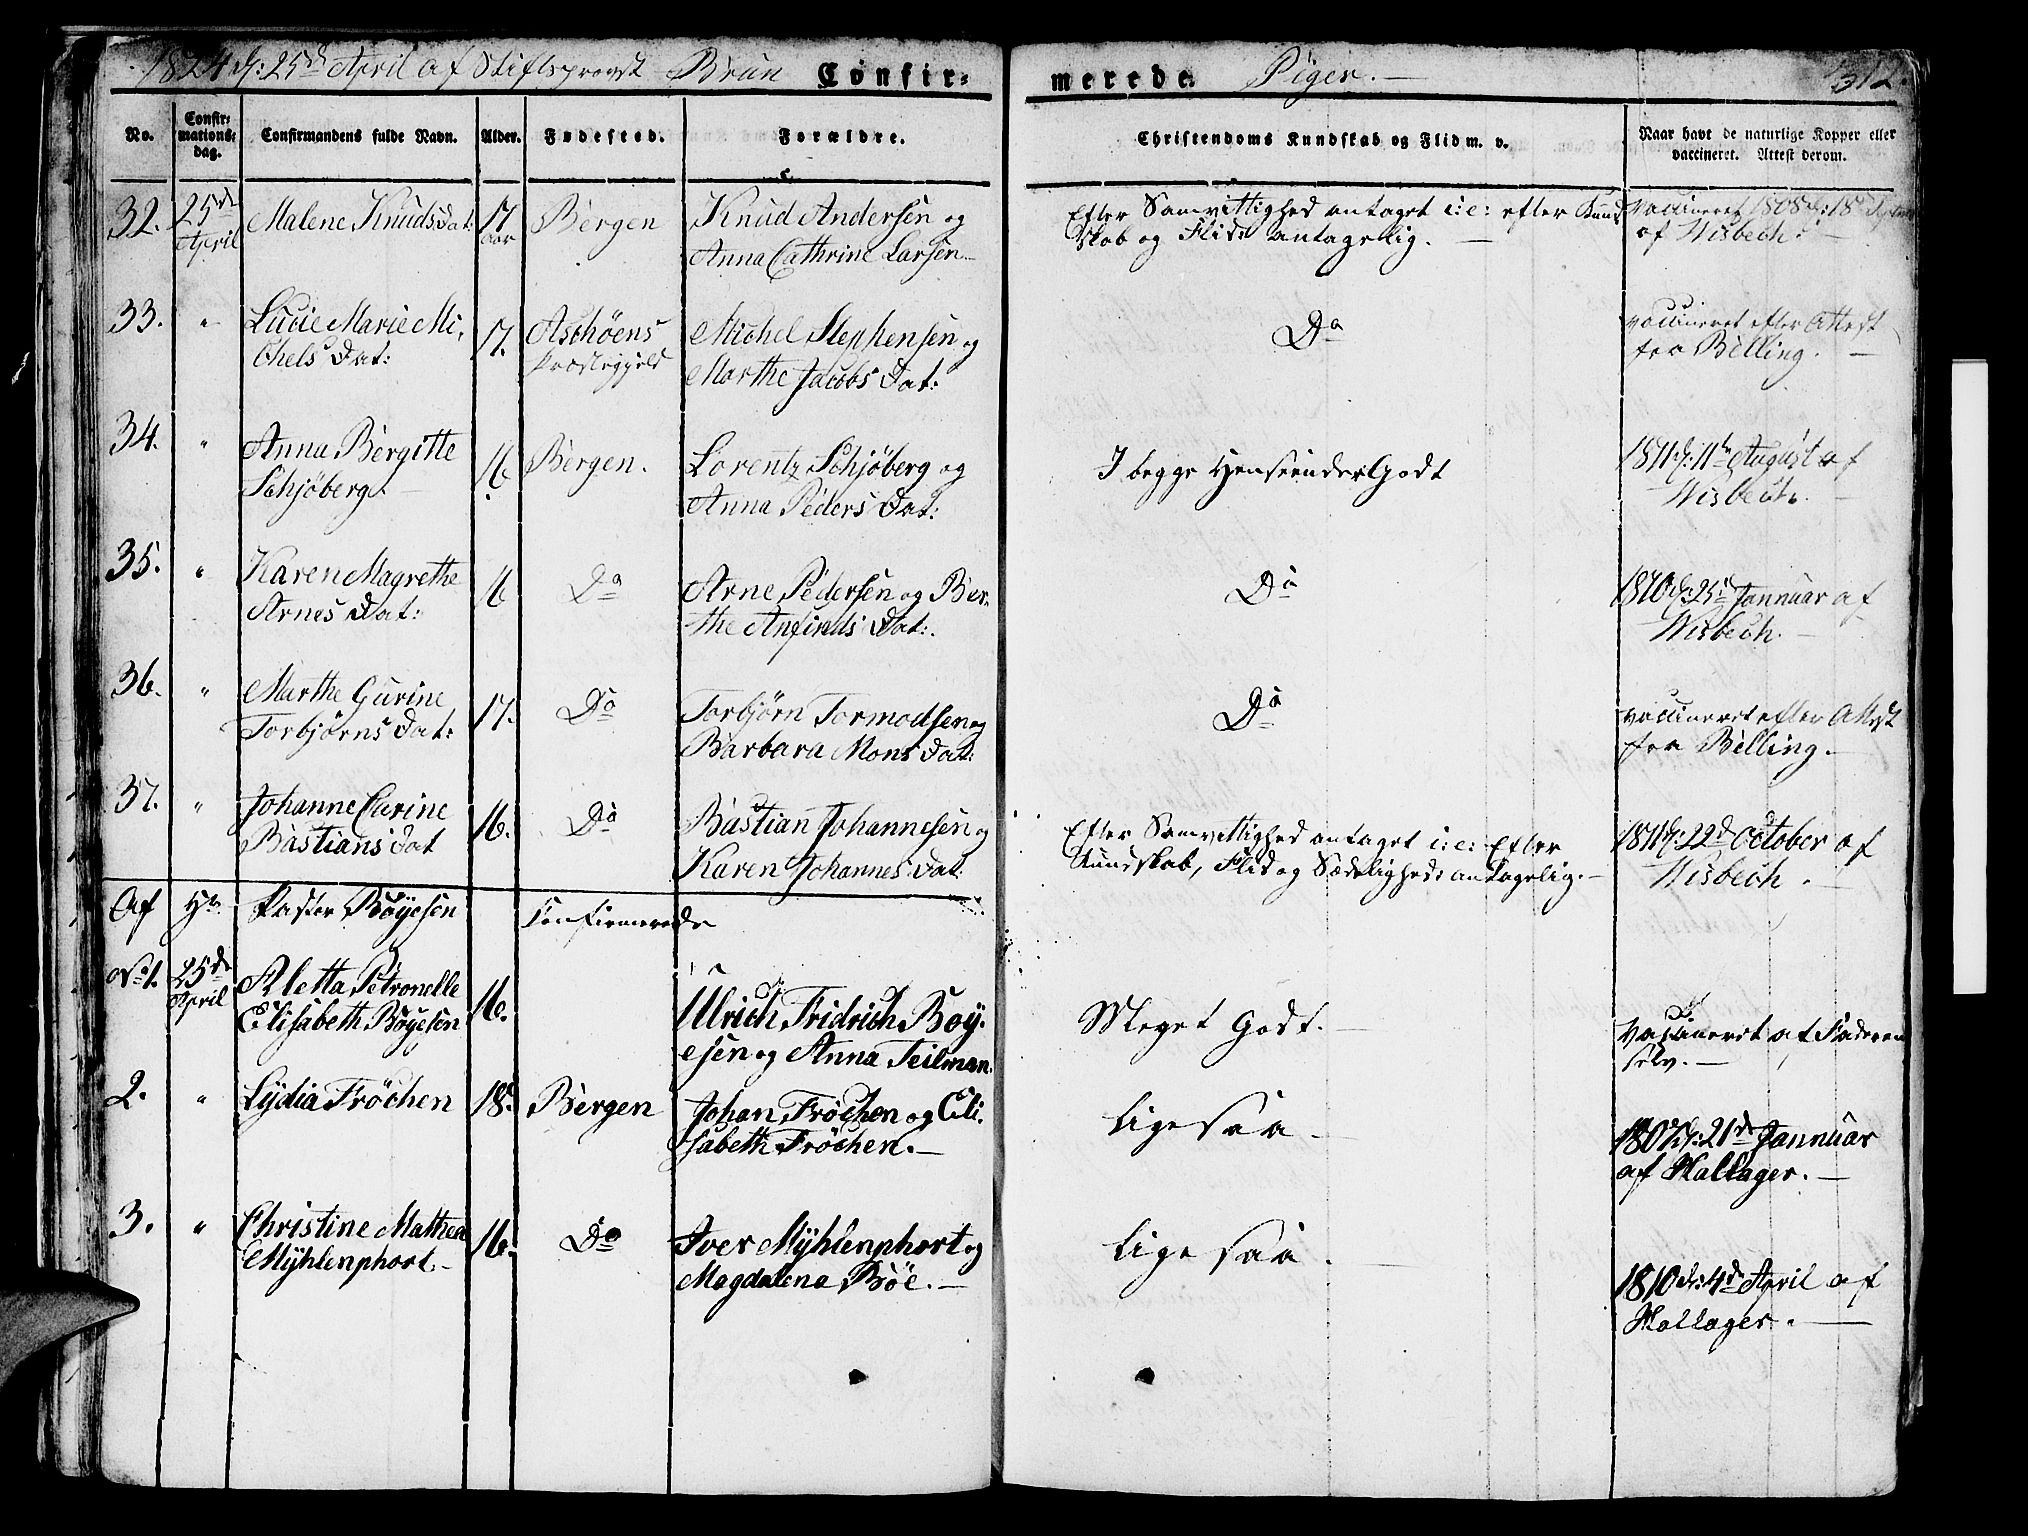 1824 d: 25de April af Stiftsprovst Brun Confir- merede. Piger. — 312.
No. Confir-mations-dag. Confirmandens fulde Navn. Alder. Fødested. Forældre. Christendoms Kundskab og Flid m. v. Naar havt de naturlige Kopper eller vaccineret. Attest derom.
32. 25de April Malene Knuds Dat: 17 aar Bergen Knud Andersen og
Anna Cathrine Larsen —
Efter Samvittighed antaget i: e: efter Kund
skab og Flid antagelig. —
Vaccineret 1808 d: 18
af Wisbech. —
33. " Lucie Marie Mi,
chels Dat: 17. Askøens
Præstegjeld Michel Stephensen og
Marthe Jacobs Dat: Do
vaccineret efter Attest
fra Belling. —
34. " Anna Bergitte
Schjøberg. — 16. Bergen. Lorentz Schjøberg og
Anna Peders Dat:
I begge Henseender Godt
1811 d: 11te August af
Wisbech. —
35. " Karen Magrethe
Arnes Dat: 16 Do Arne Pedersen og Ber-
the Anfinds Dat:. Do
1810 d: 25de Jannuar af
Wisbech. —
36. " Marthe Gurine
Torbjørns Dat: 17. Do Torbjørn Tormodsen og
Barbara Mons Dat: Do
vaccineret efter Attest
fra Belling. —
37. " Johanne Carine
Bastians Dat 16. Do Bastian Johannesen og
Karen Johannes Dat:
Efter Samvittighed antaget i: e: Efter
Kundskab, Flid og Sædelighed antagelig. —
1811 d: 22de October af
Wisbech. —
Af Hr. Pastor Bøyesen Confirmerede
No 1. 25de April Aletta Petronelle
Elisabeth Bøyesen 16. Ulrich Fridrich Boy-
esen og Anna Teilman.
Meget Godt. —
Vaccineret af Faderen
selv. —
2. " Lydia Frøchen 18. Bergen Johan Frøchen og Eli-
sabeth Frøchen. —
ligesaa —
1807 d: 21de Jannuar
af Hallager. —
3. " Christine Mathea
Myhlenphort. — 16. Do Iver Myhlenphort og
Magdalena Bøe. —
lige saa.
1810 d: 4de April af
Hallager. —